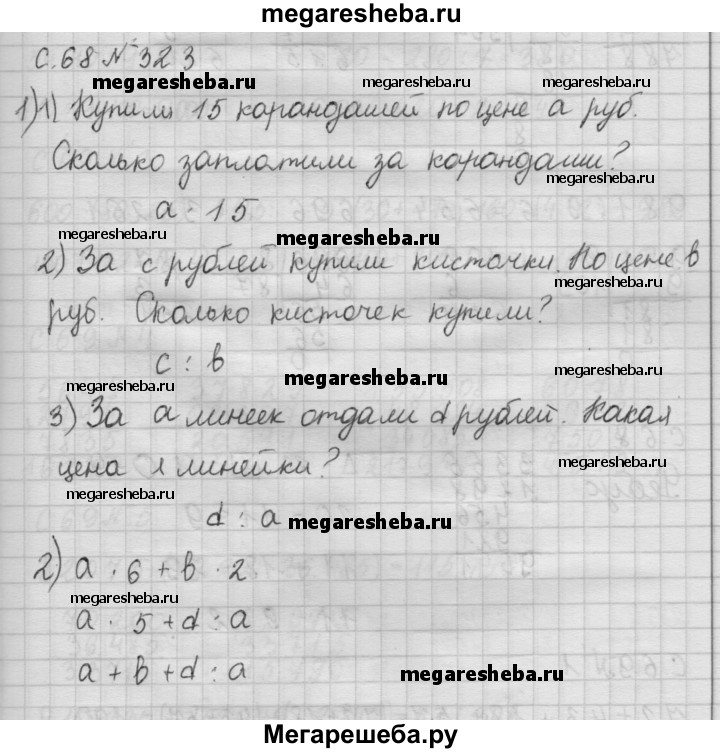 megaresheba.ru
С. 68 № 323
megaresheba.ru megaresheba.ru megaresheba.ru
1) 1) Купили 15 карандашей по цене а руб.
Сколько заплатили за карандаши?
megaresheba.ru
а · 15
megaresheba.ru megaresheba.ru
2) За с рублей купили кисточки. По цене в
megaresheba.ru
руб. Сколько кисточек купили?
с : в
megaresheba.ru megaresheba.ru megaresheba.ru
3) За а линеек отдали d рублей. Какая
цена 1 линейки?
megaresheba.ru
megaresheba.ru
d : а
megaresheba.ru
2) а · 6 + в · 2
megaresheba.ru
а · 5 + d : а
а + в + d : а
megaresheba.ru
Мегарешеба.ру